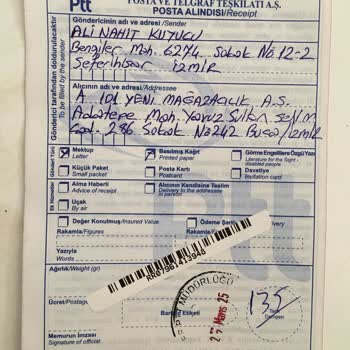 Ptt
POSTA VE TELGRAF TEŞKİLATI A.Ş.
POSTA ALINDISI/Receipt
Gönderici tarafından doldurulacaktır
To be filled by the sender
Göndericinin adı ve adresi /Sender
ALİ NAHİT KUTUCU
Bengiler Mah. 6274. Sokak No 12-2
Seferihisar İZMİR
Alıcının adı ve adresi/Addressee
A 101 YENİ MAĞAZACILIK A.Ş.
Adatepe Mah. Yavuz Sultan
286 Sokak No 242 Buca/İzmir
Gönderi Türü
Mektup
Letter
Basılmış Kağıt
Printed paper
Görme Engellilere Özgü Yazı
Literature for the Sight-
disabled people
Küçük Paket
Small packet
Posta Kartı
Postcard
Davetiye
Invitation card
Ek Hizmetler
Alma Haberi
Advice of receipt
Alıcının Kendisine Teslim
Delivery to the addressee
in person
Uçak
By air
Değer Konulmuş/Insured Value
Rakamla/Figures
Yazıyla
Words
Ödeme Şartlı
Rakamla/
Yazıyla
RR07961413945
Ağırlık/Weight (gr)
Ücret/Postage
Barkod Etiketi
MÜDÜRLÜĞÜ
27 Mars 25
135
Memurun İmzası
Signature of official